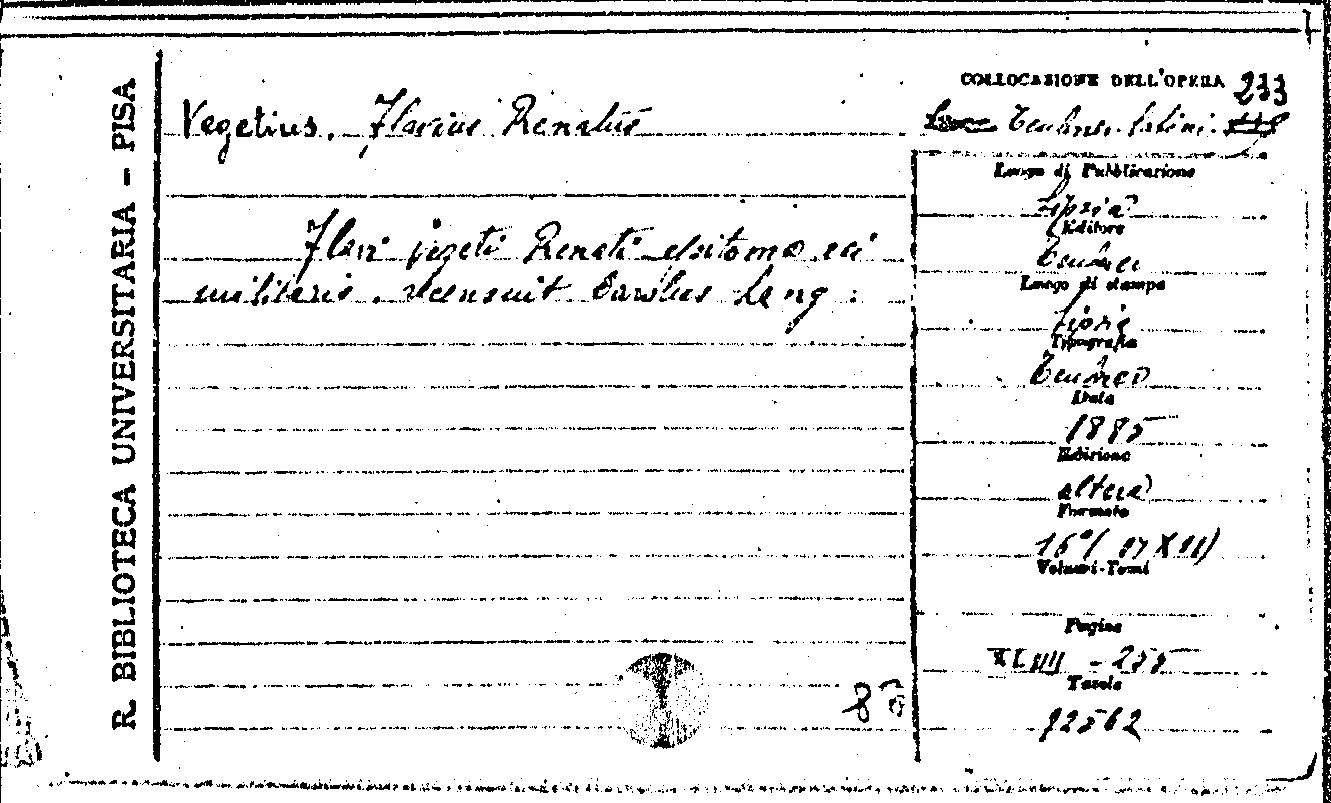 R. BIBLIOTECA UNIVERSITARIA - PISA
COLLOCAZIONE DELL'OPERA 233
Vegetius, Flavius Renatus
Teubner. latini.
Luogo di Pubblicazione
Lipsia
Editore
Flavi Vegeti Renati epitoma rei
Teubner
militaris. recensuit Carolus Lang.
Luogo di stampa
Lipsia
Tipografia
Teubner
Data
1885
Edizione
altera
Formato
16°
Volumi-Tomi
Pagine
XLIIII - 255
Tavole
80
92562